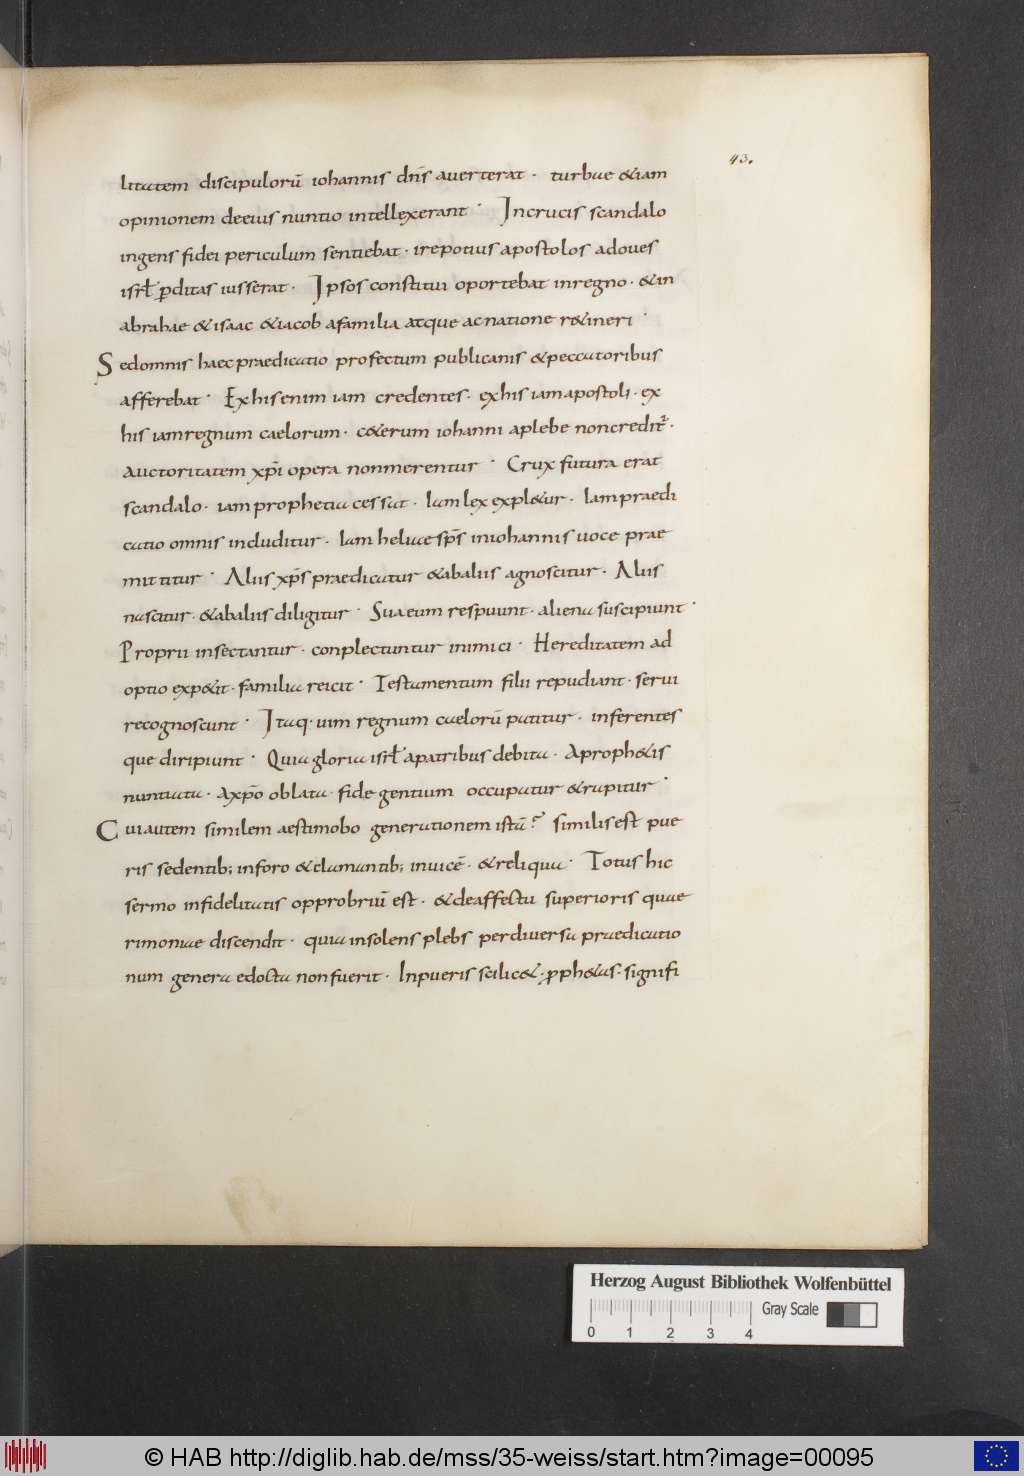 43.
litatem discipulorū iohannis dn̄s auerterat · turbae &iam
opinionem deeius nuntio intellexerant · Incrucis scandalo
ingens fidei periculum sentiebat · irepotius apostolos adoues
isrl̄ ꝑditas iusserat · Ipsos constitui oportebat inregno · &in
abrahae &isaac &iacob afamilia atque acnatione r&ineri ·
Sedomnis haec praedicatio profectum publicanis &peccatoribus
afferebat · Exhisenim iam credentes · exhis iamapostoli · ex
his iamregnum caelorum · c&erum iohanni aplebe noncredit᷑ ·
Auctoritatem xp̄i opera nonmerentur · Crux futura erat
scandalo · iam prophetia cessat · Iam lex expl&ur · Iam praedi
catio omnis includitur · Iam heliae sp̄s iniohannis uoce prae
mittitur · Aliis xp̄s praedicatur &abaliis agnoscitur · Aliis
nascitur · &abaliis diligitur · Sua eum respuunt · aliena suscipiunt ·
Proprii insectantur · conplectuntur inimici · Hereditatem ad
optio exp&it · familia reicit · Testamentum filii repudiant · serui
recognoscunt · Itaq· uim regnum caelorū patitur · inferentes
que diripiunt · Quia gloria isrl̄ apatribus debita · Aproph&is
nuntiata · Axp̄o oblata · fide gentium occupatur &rapitur ·
Cuiautem similem aestimobo generationem istā? similis est pue
ris sedentib; inforo &clamantib; inuicē · &reliqua · Totus hic
sermo infidelitatis opprobriū est · &deaffectu superioris quae
rimoniae discendit · quia insolens plebs perdiuersa praedicatio
num genera edocta nonfuerit · Inpueris scilic& · ꝓph&as · signifi
Herzog August Bibliothek Wolfenbüttel
Gray Scale
0 1 2 3 4
© HAB http://diglib.hab.de/mss/35-weiss/start.htm?image=00095